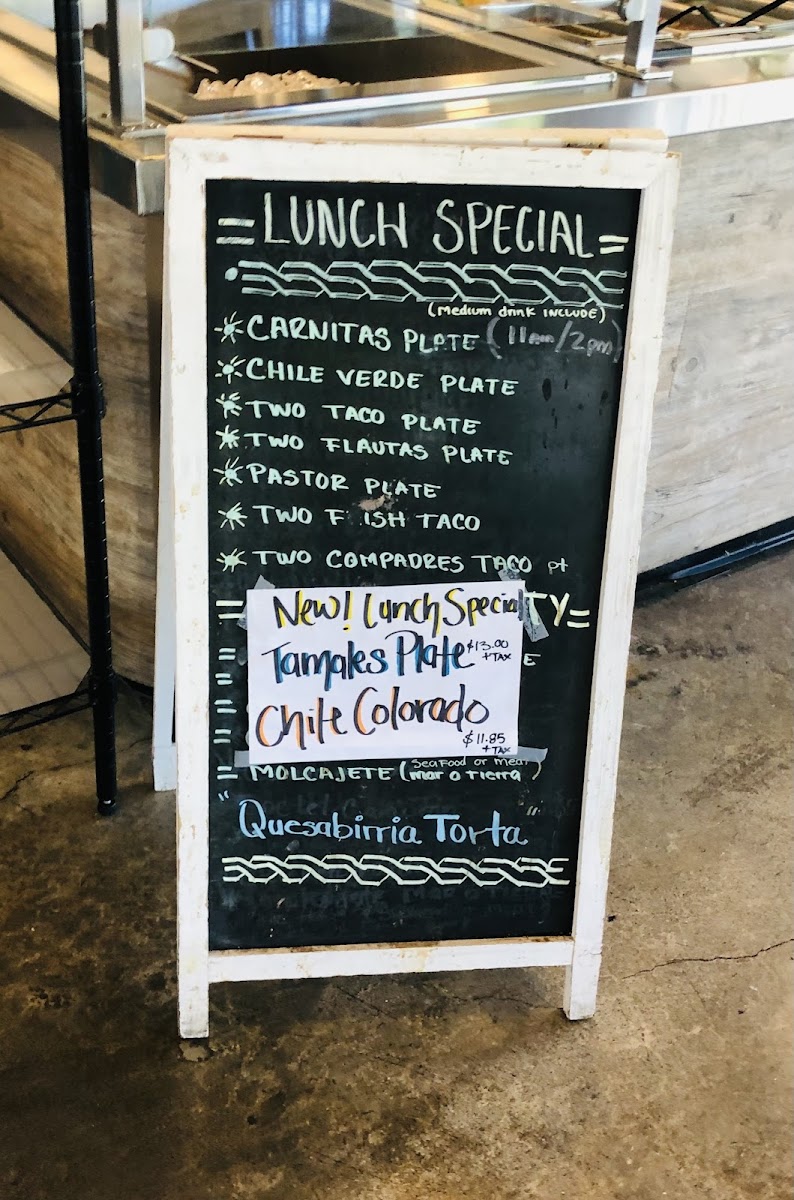 = LUNCH SPECIAL =
(medium drink INCLUDE)
CARNITAS PLATE (11am/2pm)
CHILE VERDE PLATE
TWO TACO PLATE
TWO FLAUTAS PLATE
PASTOR PLATE
TWO FISH TACO
TWO COMPADRES TACO pt
= TY =
New! Lunch Special
Tamales Plate $13.00
+TAX
E
Chile Colorado
$11.85
+TAX
= MOLCAJETE (Seafood or meat
mar o tierra)
"Quesabirria Torta"